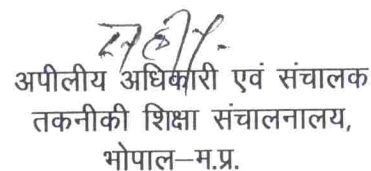 अपीलीय अधिकारी एवं संचालक
तकनीकी शिक्षा संचालनालय,
भोपाल–म.प्र.